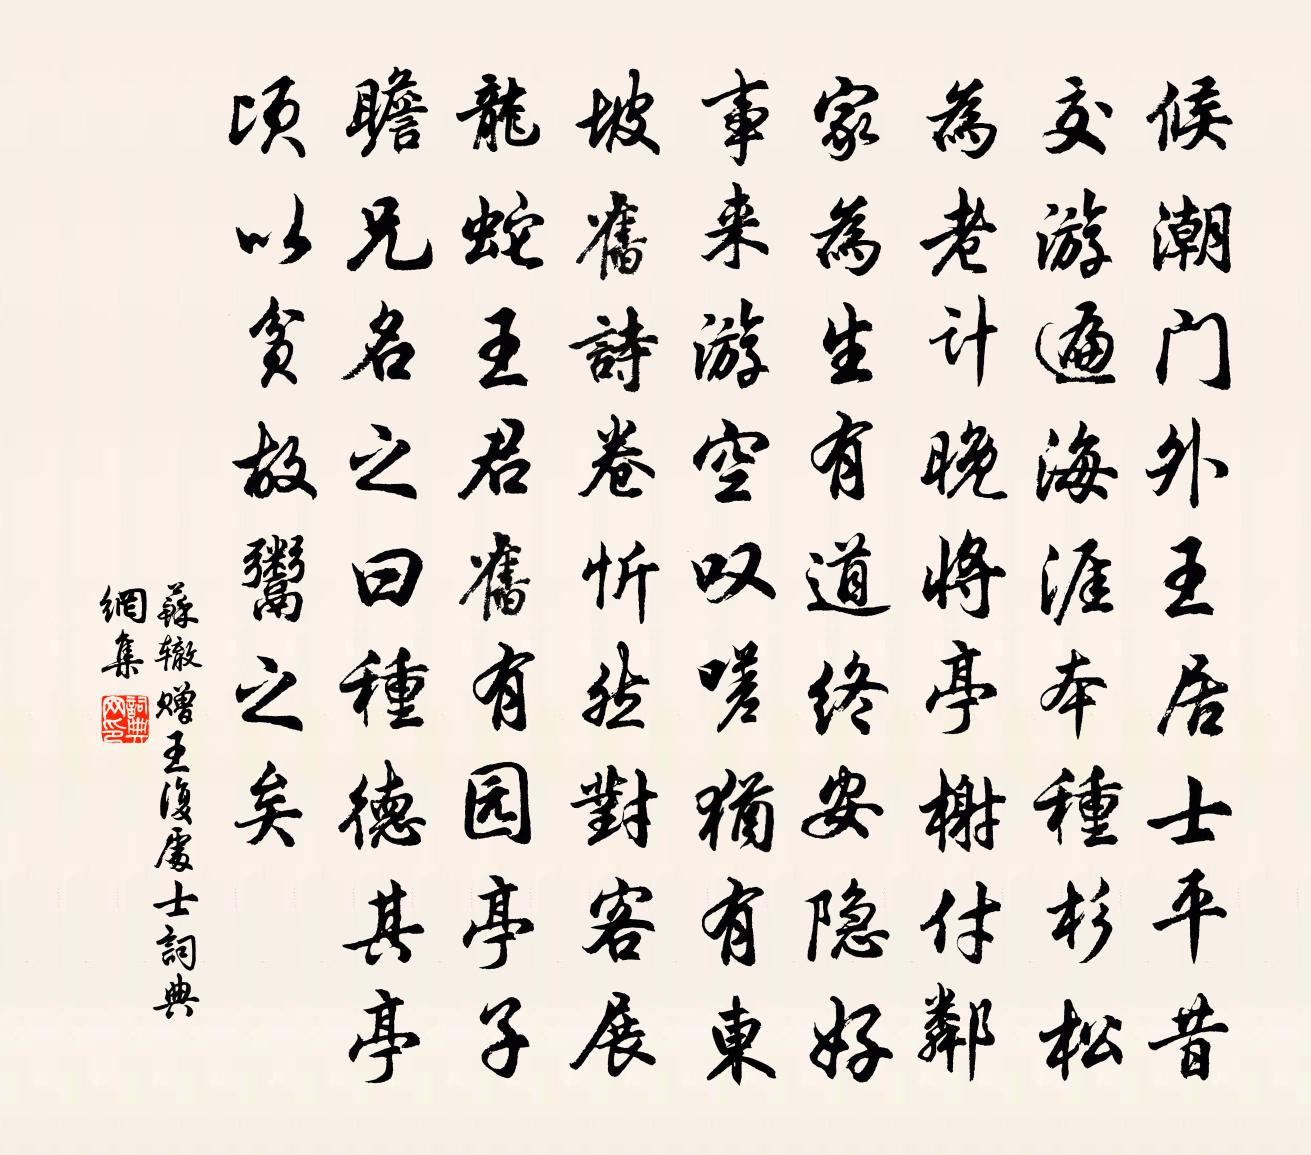 候潮门外王居士平昔
交游遍海涯本種杉松
為老計晚將亭榭付鄰
家為生有道终安隐好
事来游空叹嗟猶有東
坡舊詩卷忻然對客展
龍蛇王君舊有园亭子
瞻兄名之曰種德其亭
頃以貧故鬻之矣
蘇辙赠王復處士詞典
網集
詞典网印